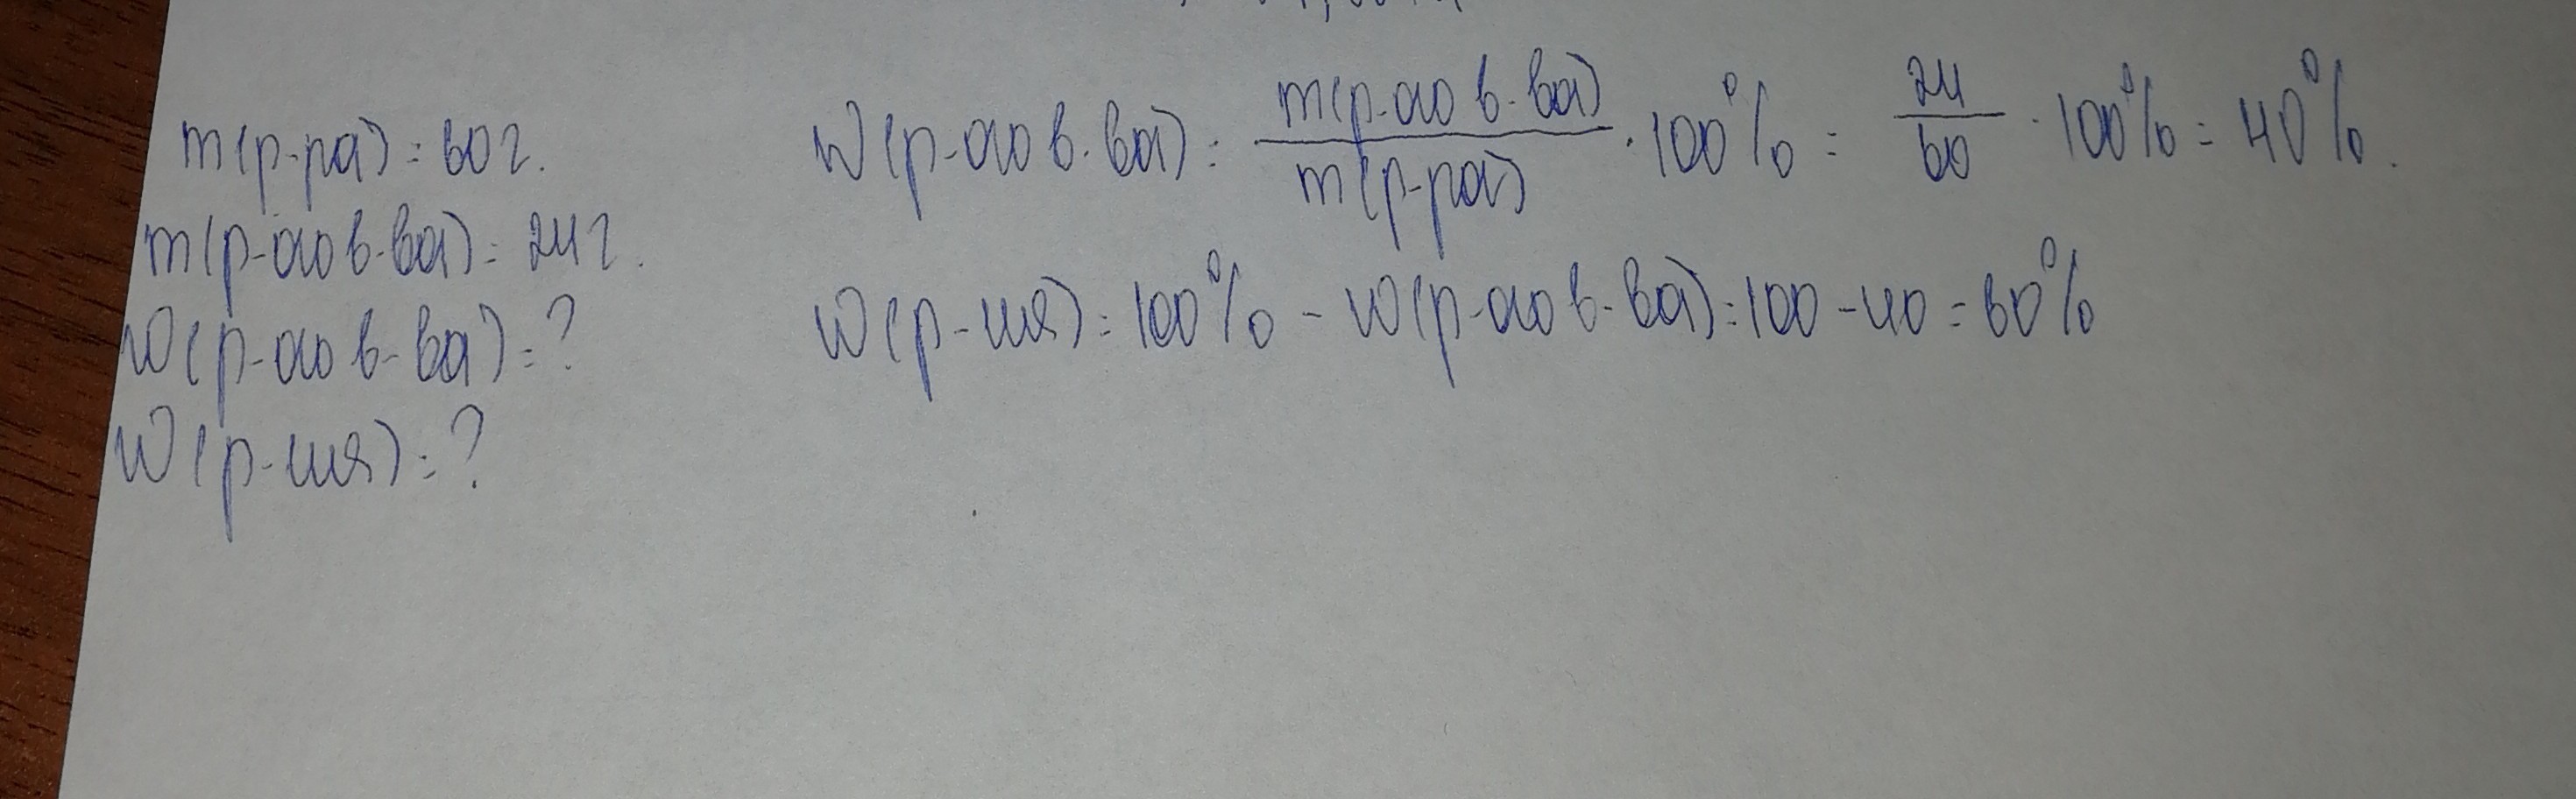 m(р-ра) = 60 г.
m(р-ого в-ва) = 24 г.
W(р-ого в-ва) = ?
W(р-ля) = ?
W(р-ого в-ва) = m(р-ого в-ва) / m(р-ра) · 100% = 24/60 · 100% = 40%.
W(р-ля) = 100% - W(р-ого в-ва) = 100 - 40 = 60%